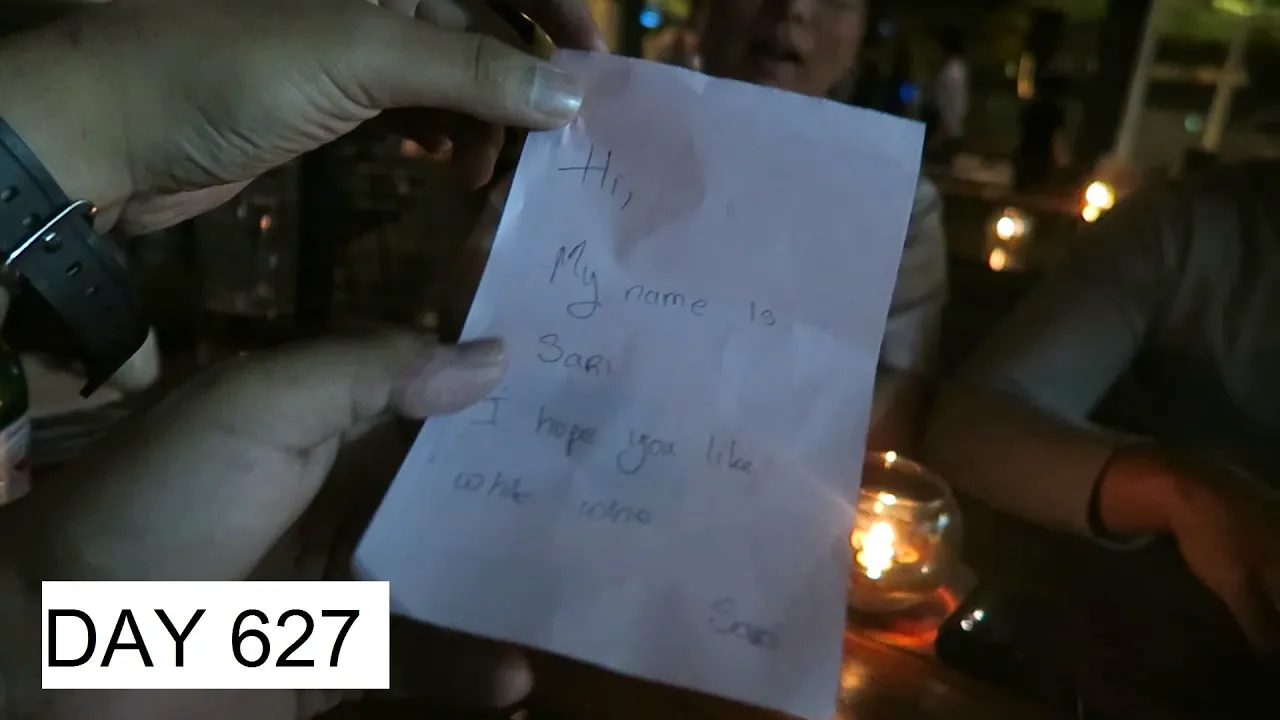 Hi,
My name is
Sari
I hope you like
white wine
Sari
DAY 627